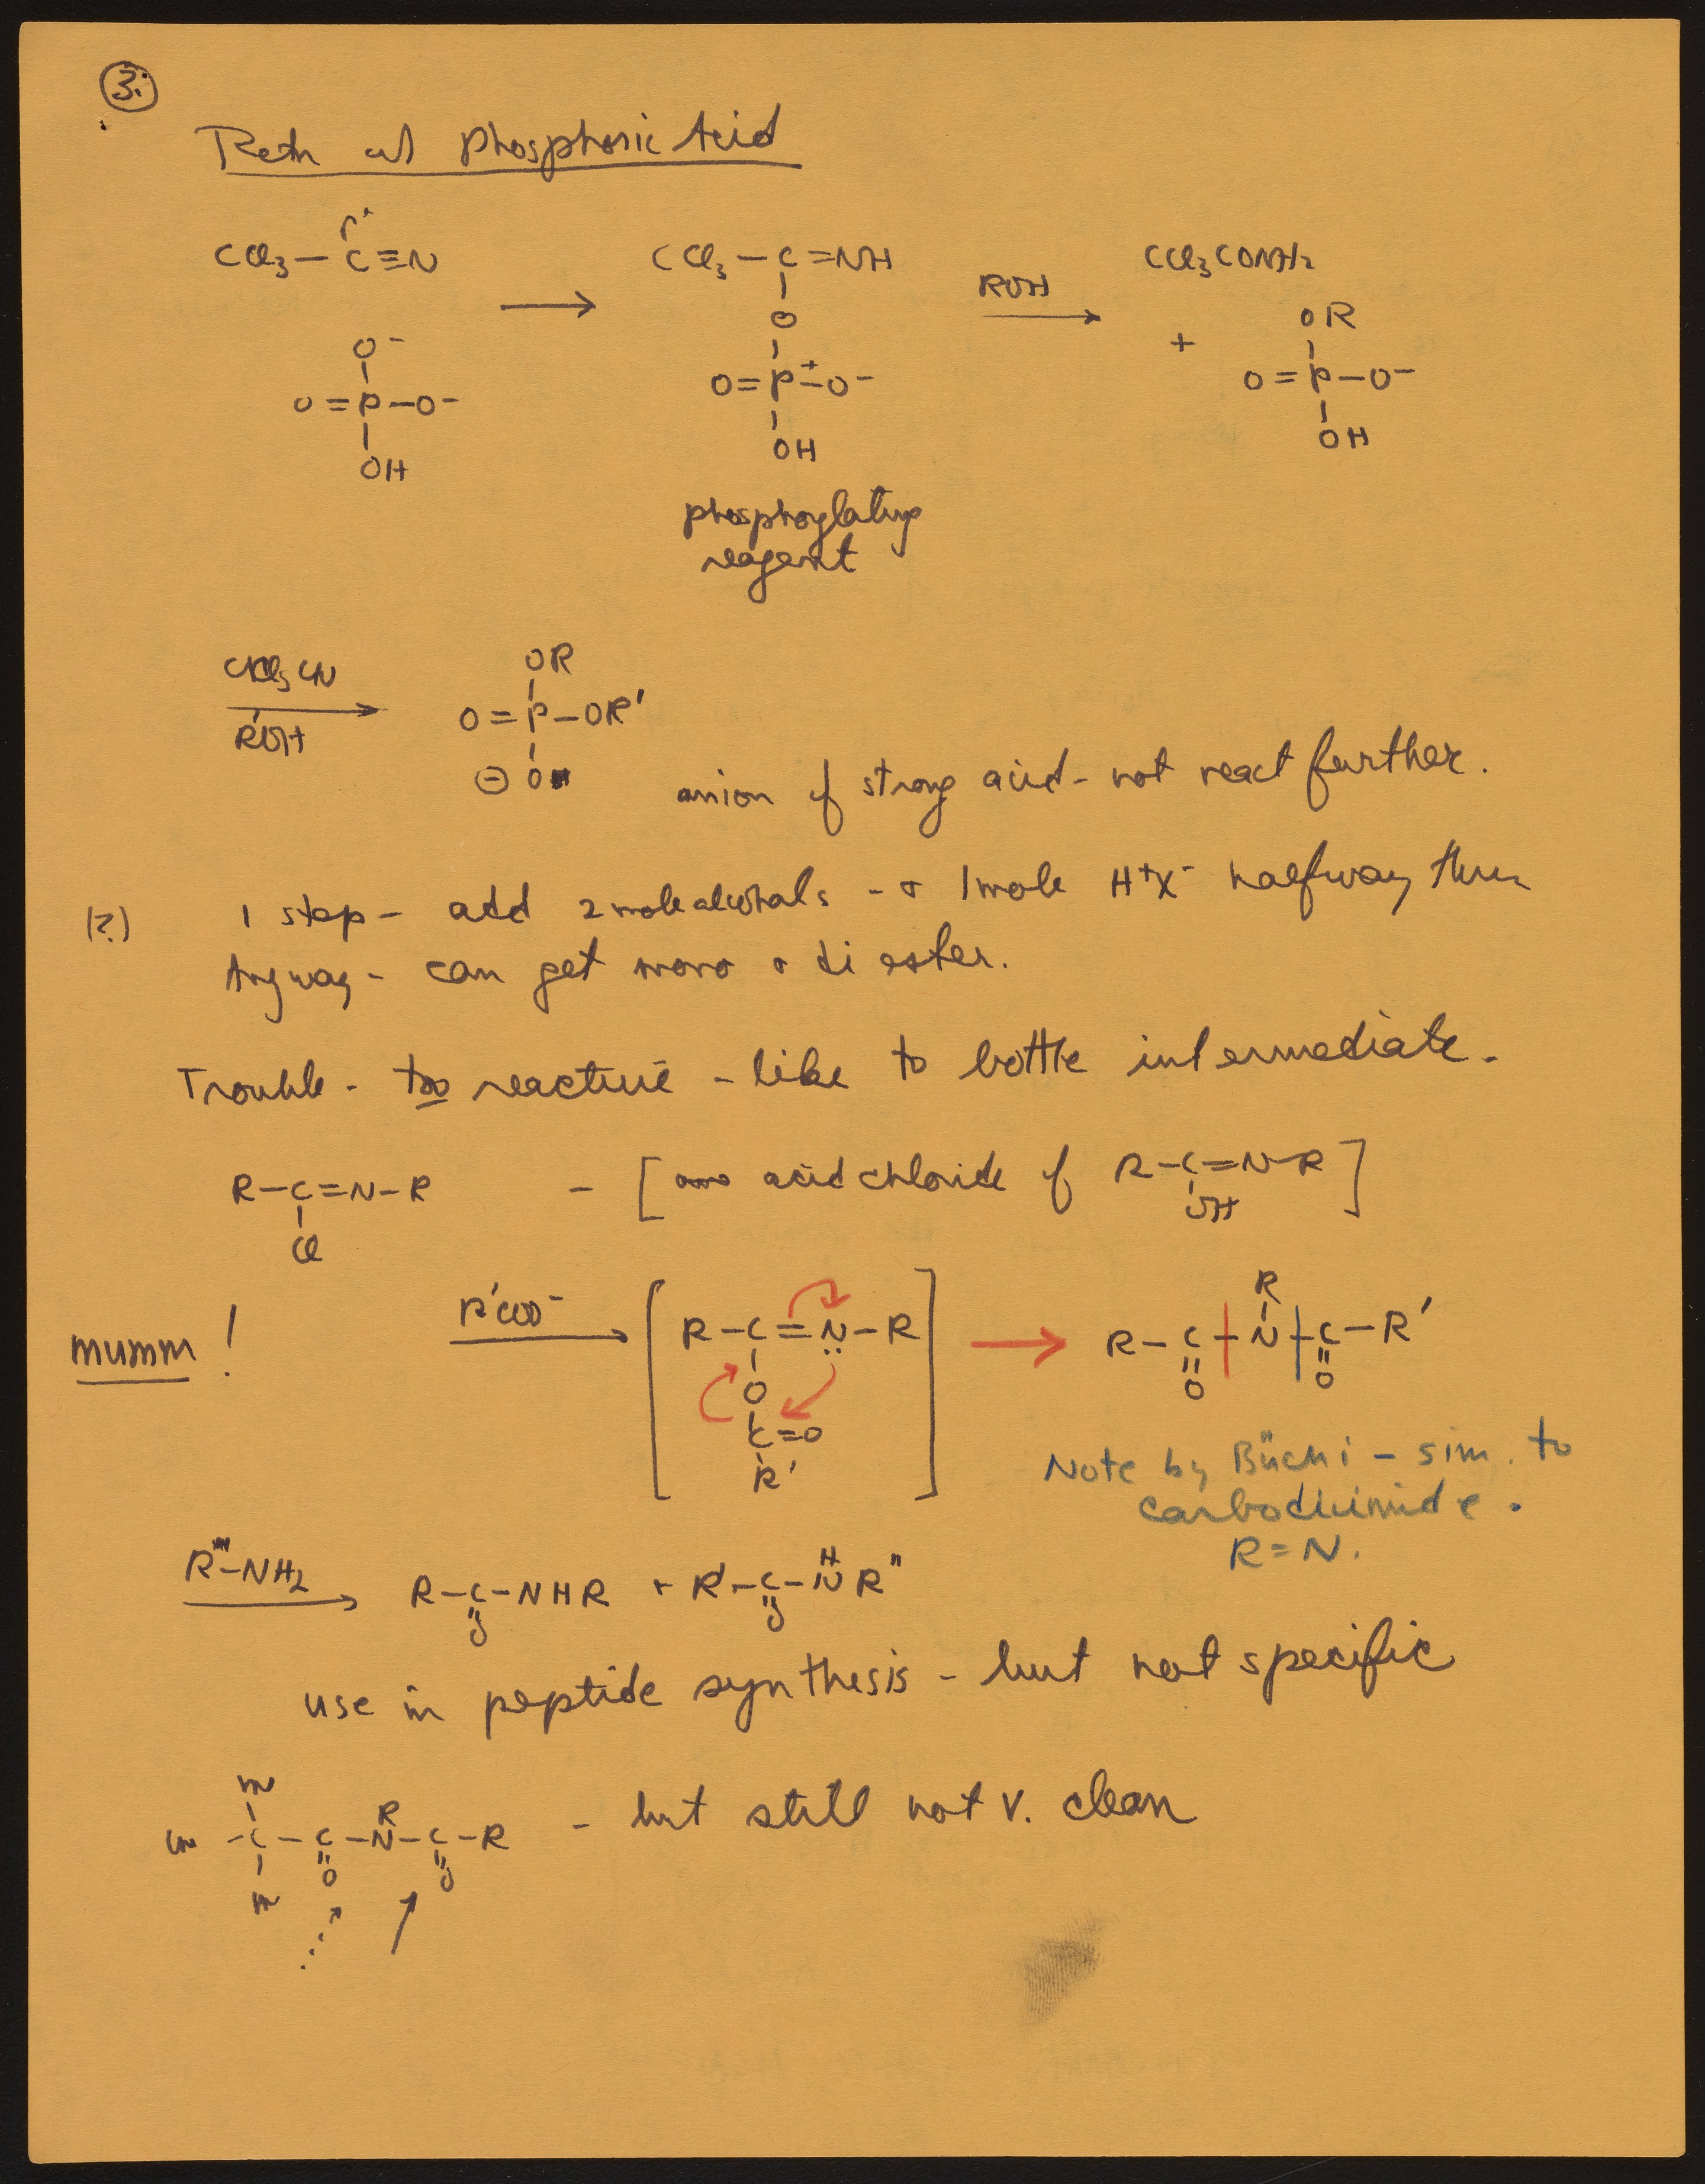 3.
Rctn w/ Phosphoric Acid
CCl3 – C ≡ N → CCl3 – C = NH ROH → CCl3CONH2
O⁻ O + OR
O = P – O⁻ O = P⁺ – O⁻ O = P – O⁻
OH OH OH
phosphoylating
reagent
CCl3CN OR
R'OH → O = P – OR'
⊖ O
anion of strong acid - not react further.
(?) 1 step - add 2 mole alcohols - + 1 mole H⁺X⁻ halfway thru
Anyway - can get mono + di ester.
Trouble - too reactive - like to bottle intermediate.
R – C = N – R - [ acid chloride of R – C = N – R ]
Cl OH
mumm ! R'COO⁻ → [ R – C = N̤ – R ] → R – C – N – C – R'
O R
C = O O O
R'
Note by Büchi - sim. to
carbodiimide.
R = N.
R''' – NH2 → R – C – NHR + R' – C – NR''
O O H
use in peptide synthesis - but not specific
m
m – C – C – N – C – R - but still not v. clean
m O R O